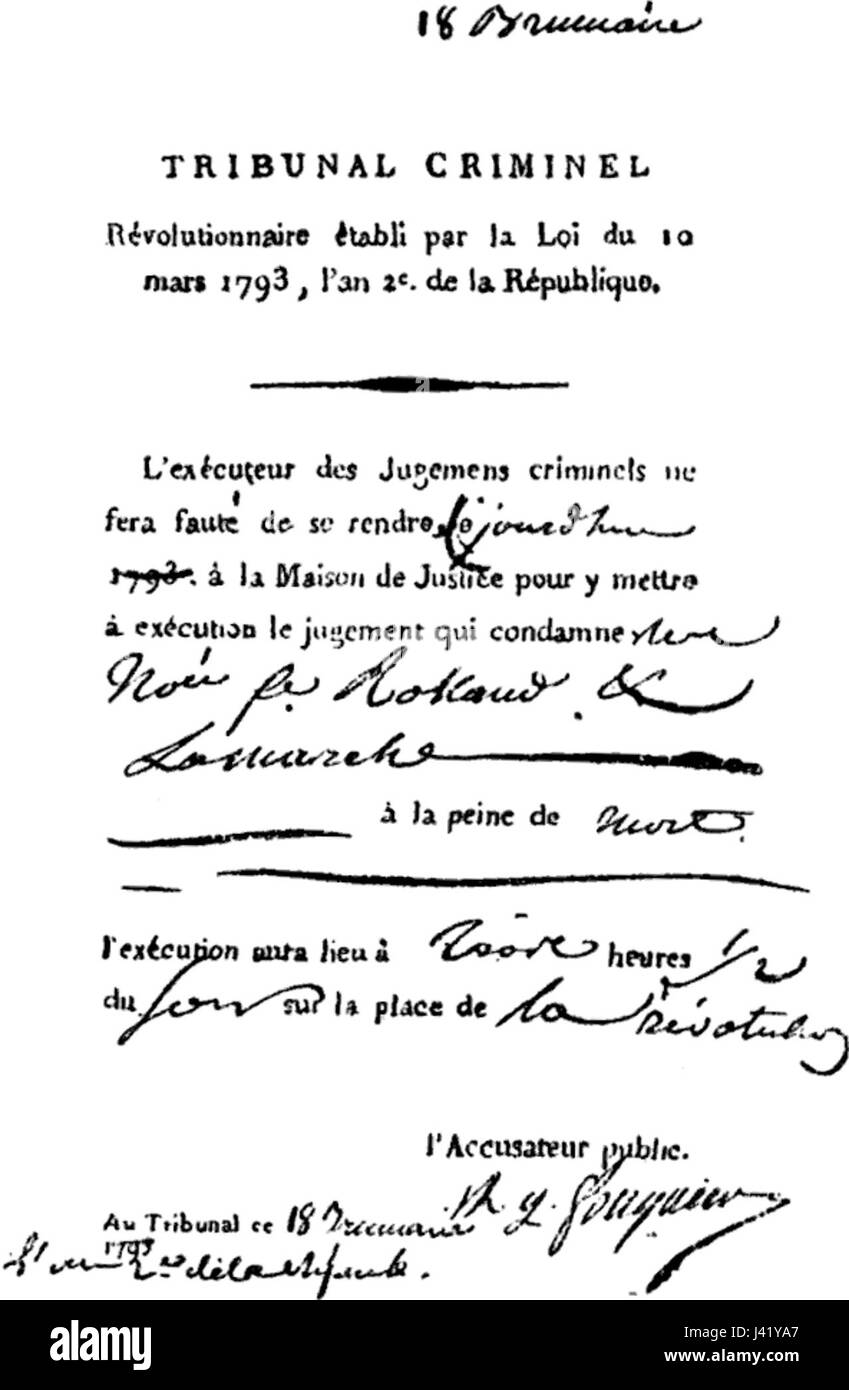 18 Brumaire
TRIBUNAL CRIMINEL
Révolutionnaire établi par la Loi du 10
mars 1793, l'an 2e. de la République.
L'exécuteur des Jugemens criminels ne
fera faute de se rendre jourd'hui
1793. à la Maison de Justice pour y mettre
à exécution le jugement qui condamne
Rolland &
Lamarche
à la peine de mort.
l'exécution aura lieu à heures 1/2
du sur la place de la révolution
l'Accusateur public.
Au Tribunal ce 18 Brumaire
1793
de la
alamy
Image ID: J41YA7
www.alamy.com